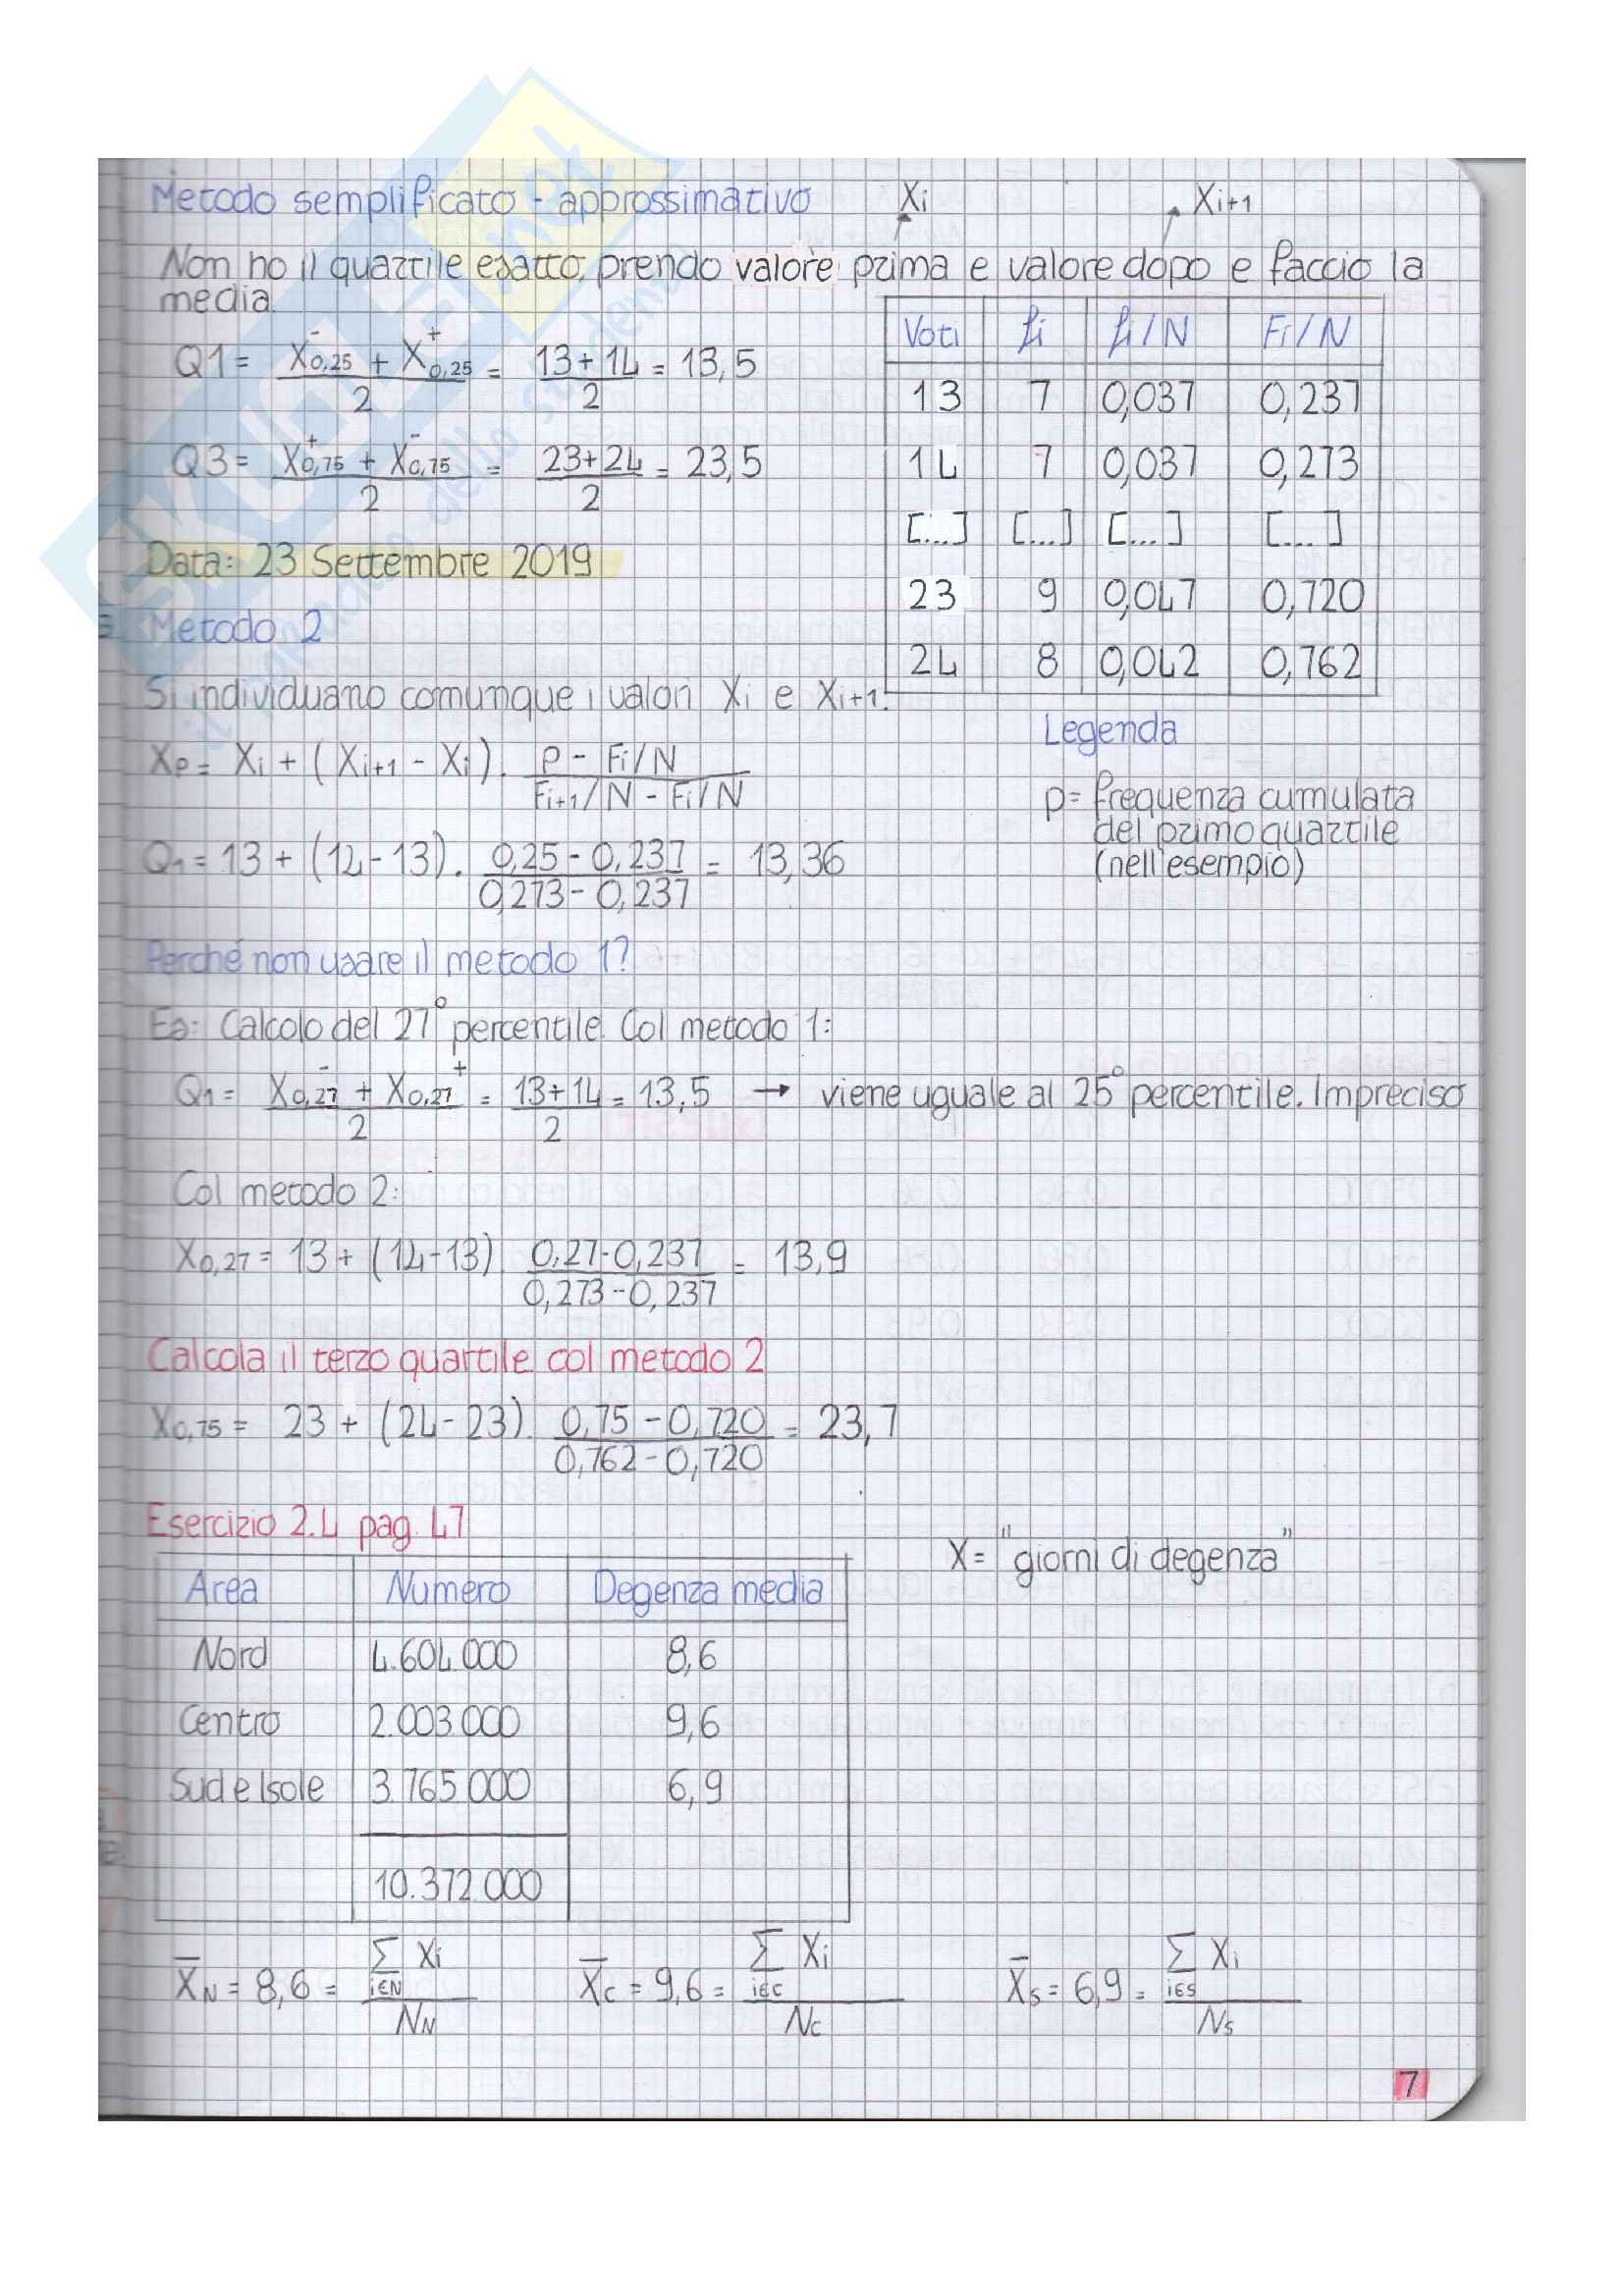 Metodo semplificato - approssimativo Xi Xi+1
Non ho il quartile esatto, prendo valore prima e valore dopo e faccio la
media.
Q1 = (X⁻0,25 + X⁺0,25) / 2 = (13+14) / 2 = 13,5
Q3 = (X⁺0,75 + X⁻0,75) / 2 = (23+24) / 2 = 23,5
Voti fi fi/N Fi/N
13 7 0,037 0,237
14 7 0,037 0,273
[...] [...] [...] [...]
23 9 0,047 0,720
24 8 0,042 0,762
Data: 23 Settembre 2019
Metodo 2
Si individuano comunque i valori Xi e Xi+1.
Xp = Xi + (Xi+1 - Xi) . (p - Fi/N) / (Fi+1/N - Fi/N)
Legenda
p= frequenza cumulata
del primo quartile
(nell'esempio)
Q1 = 13 + (14-13) . (0,25 - 0,237) / (0,273 - 0,237) = 13,36
Perché non usare il metodo 1?
Es: Calcolo del 27° percentile. Col metodo 1:
Q1 = (X⁻0,27 + X⁺0,27) / 2 = (13+14) / 2 = 13,5 → viene uguale al 25° percentile. Impreciso
Col metodo 2:
X0,27 = 13 + (14-13) . (0,27-0,237) / (0,273-0,237) = 13,9
Calcola il terzo quartile col metodo 2
X0,75 = 23 + (24-23) . (0,75 - 0,720) / (0,762-0,720) = 23,7
Esercizio 2.4 pag. 47
X= "giorni di degenza"
Area Numero Degenza media
Nord 4.604.000 8,6
Centro 2.003.000 9,6
Sud e Isole 3.765.000 6,9
10.372.000
X̄N = 8,6 = Σi∈N Xi / NN X̄C = 9,6 = Σi∈C Xi / NC X̄S = 6,9 = Σi∈S Xi / NS
7
SKUOLA.net
il paradiso dello studente